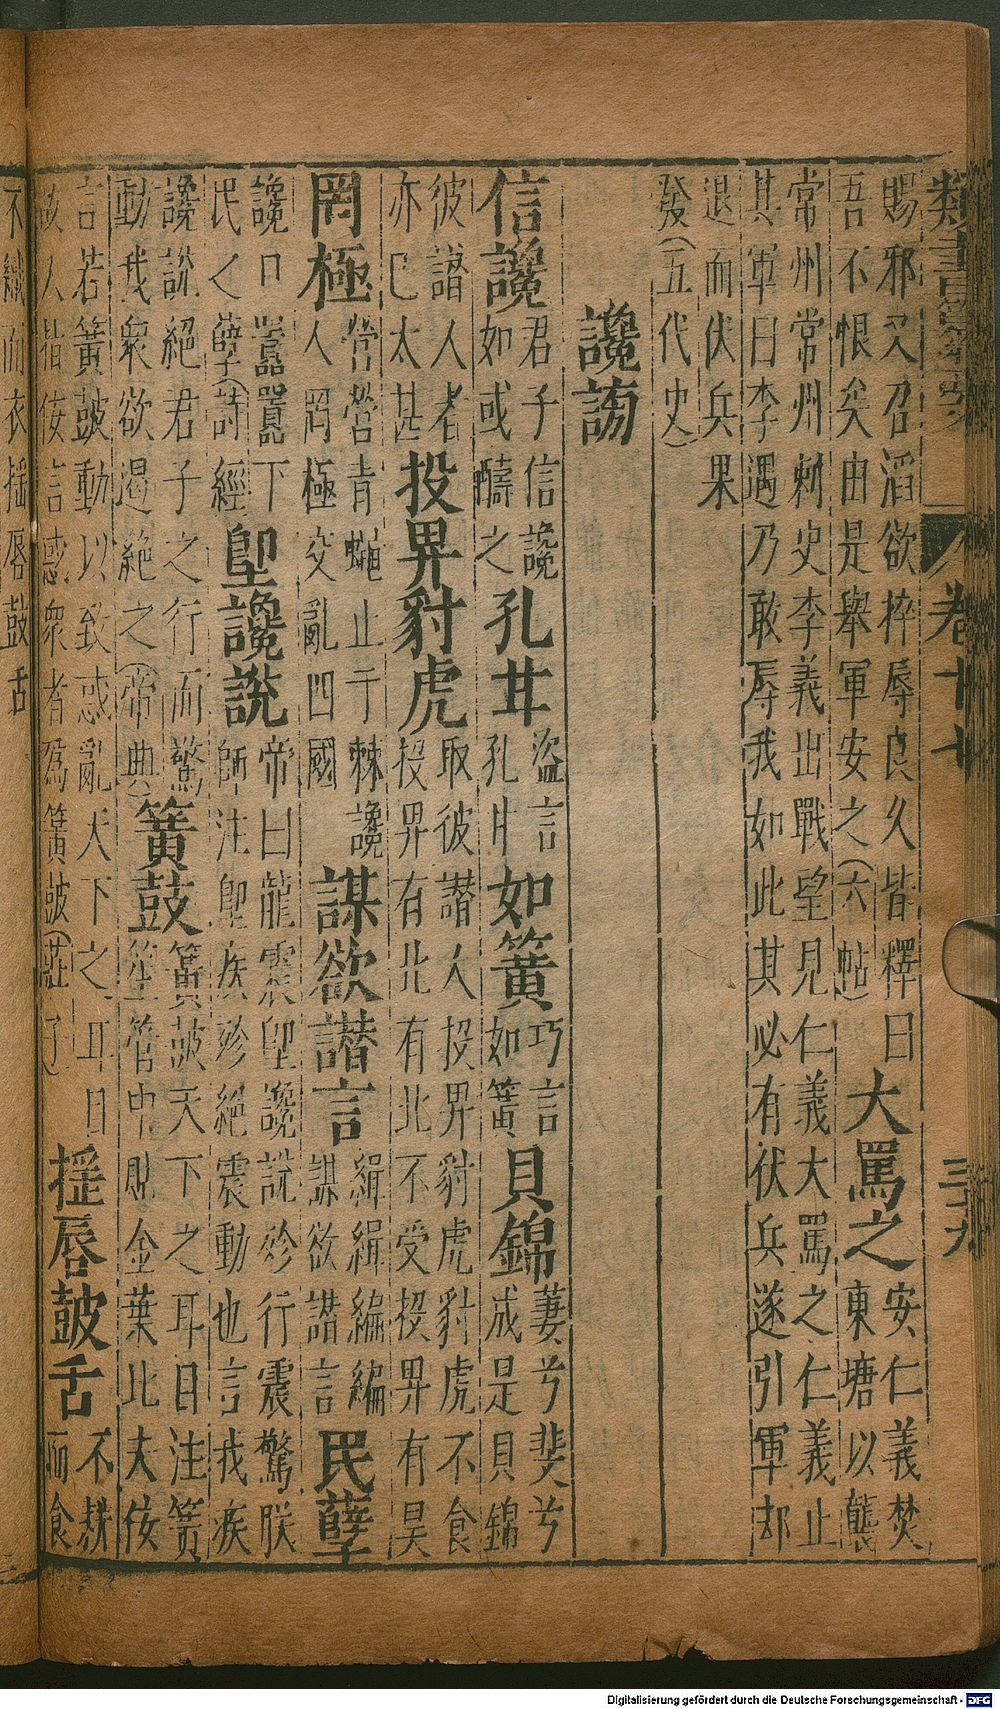 類書纂要 卷廿七 三十九
賜邪又召滔欲捽辱良久皆釋曰
吾不恨矣由是舉軍安之(六帖)
大罵之
安仁義焚
東塘以襲
常州常州刺史李義出戰望見仁義大罵之仁義止
其軍曰李遇乃敢辱我如此其必有伏兵遂引軍却
退而伏兵果
發(五代史)
讒謗
信讒
君子信讒
如或醻之
孔甘
盜言
孔甘
如簧
巧言
如簧
貝錦
萋兮斐兮
成是貝錦
彼譖人者
亦已太甚
投畀豺虎
取彼譖人投畀豺虎豺虎不食
投畀有北有北不受投畀有昊
罔極
營營青蠅止于棘讒
人罔極交亂四國
謀欲譖言
緝緝編編
謀欲譖言
民孽
讒口囂囂下
民之孽(詩經)
堲讒說
帝曰龍震堲讒說殄行震驚朕
師注堲疾殄絕震動也言我疾
讒說絕君子之行而驚
動我衆欲遏絕之(帝典)
簧鼓
簧鼓天下之耳目注簧
笙管中金葉此夫佞
言若簧鼓動以致惑亂天下之耳目
故人指佞言惑衆者為簧鼓(莊子)
搖唇鼓舌
不耕
而食
不織而衣搖唇鼓舌
Digitalisierung gefördert durch die Deutsche Forschungsgemeinschaft - DFG